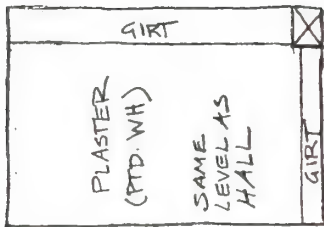 GIRT
PLASTER
(PTD. WH)
SAME
LEVEL AS
HALL
GIRT